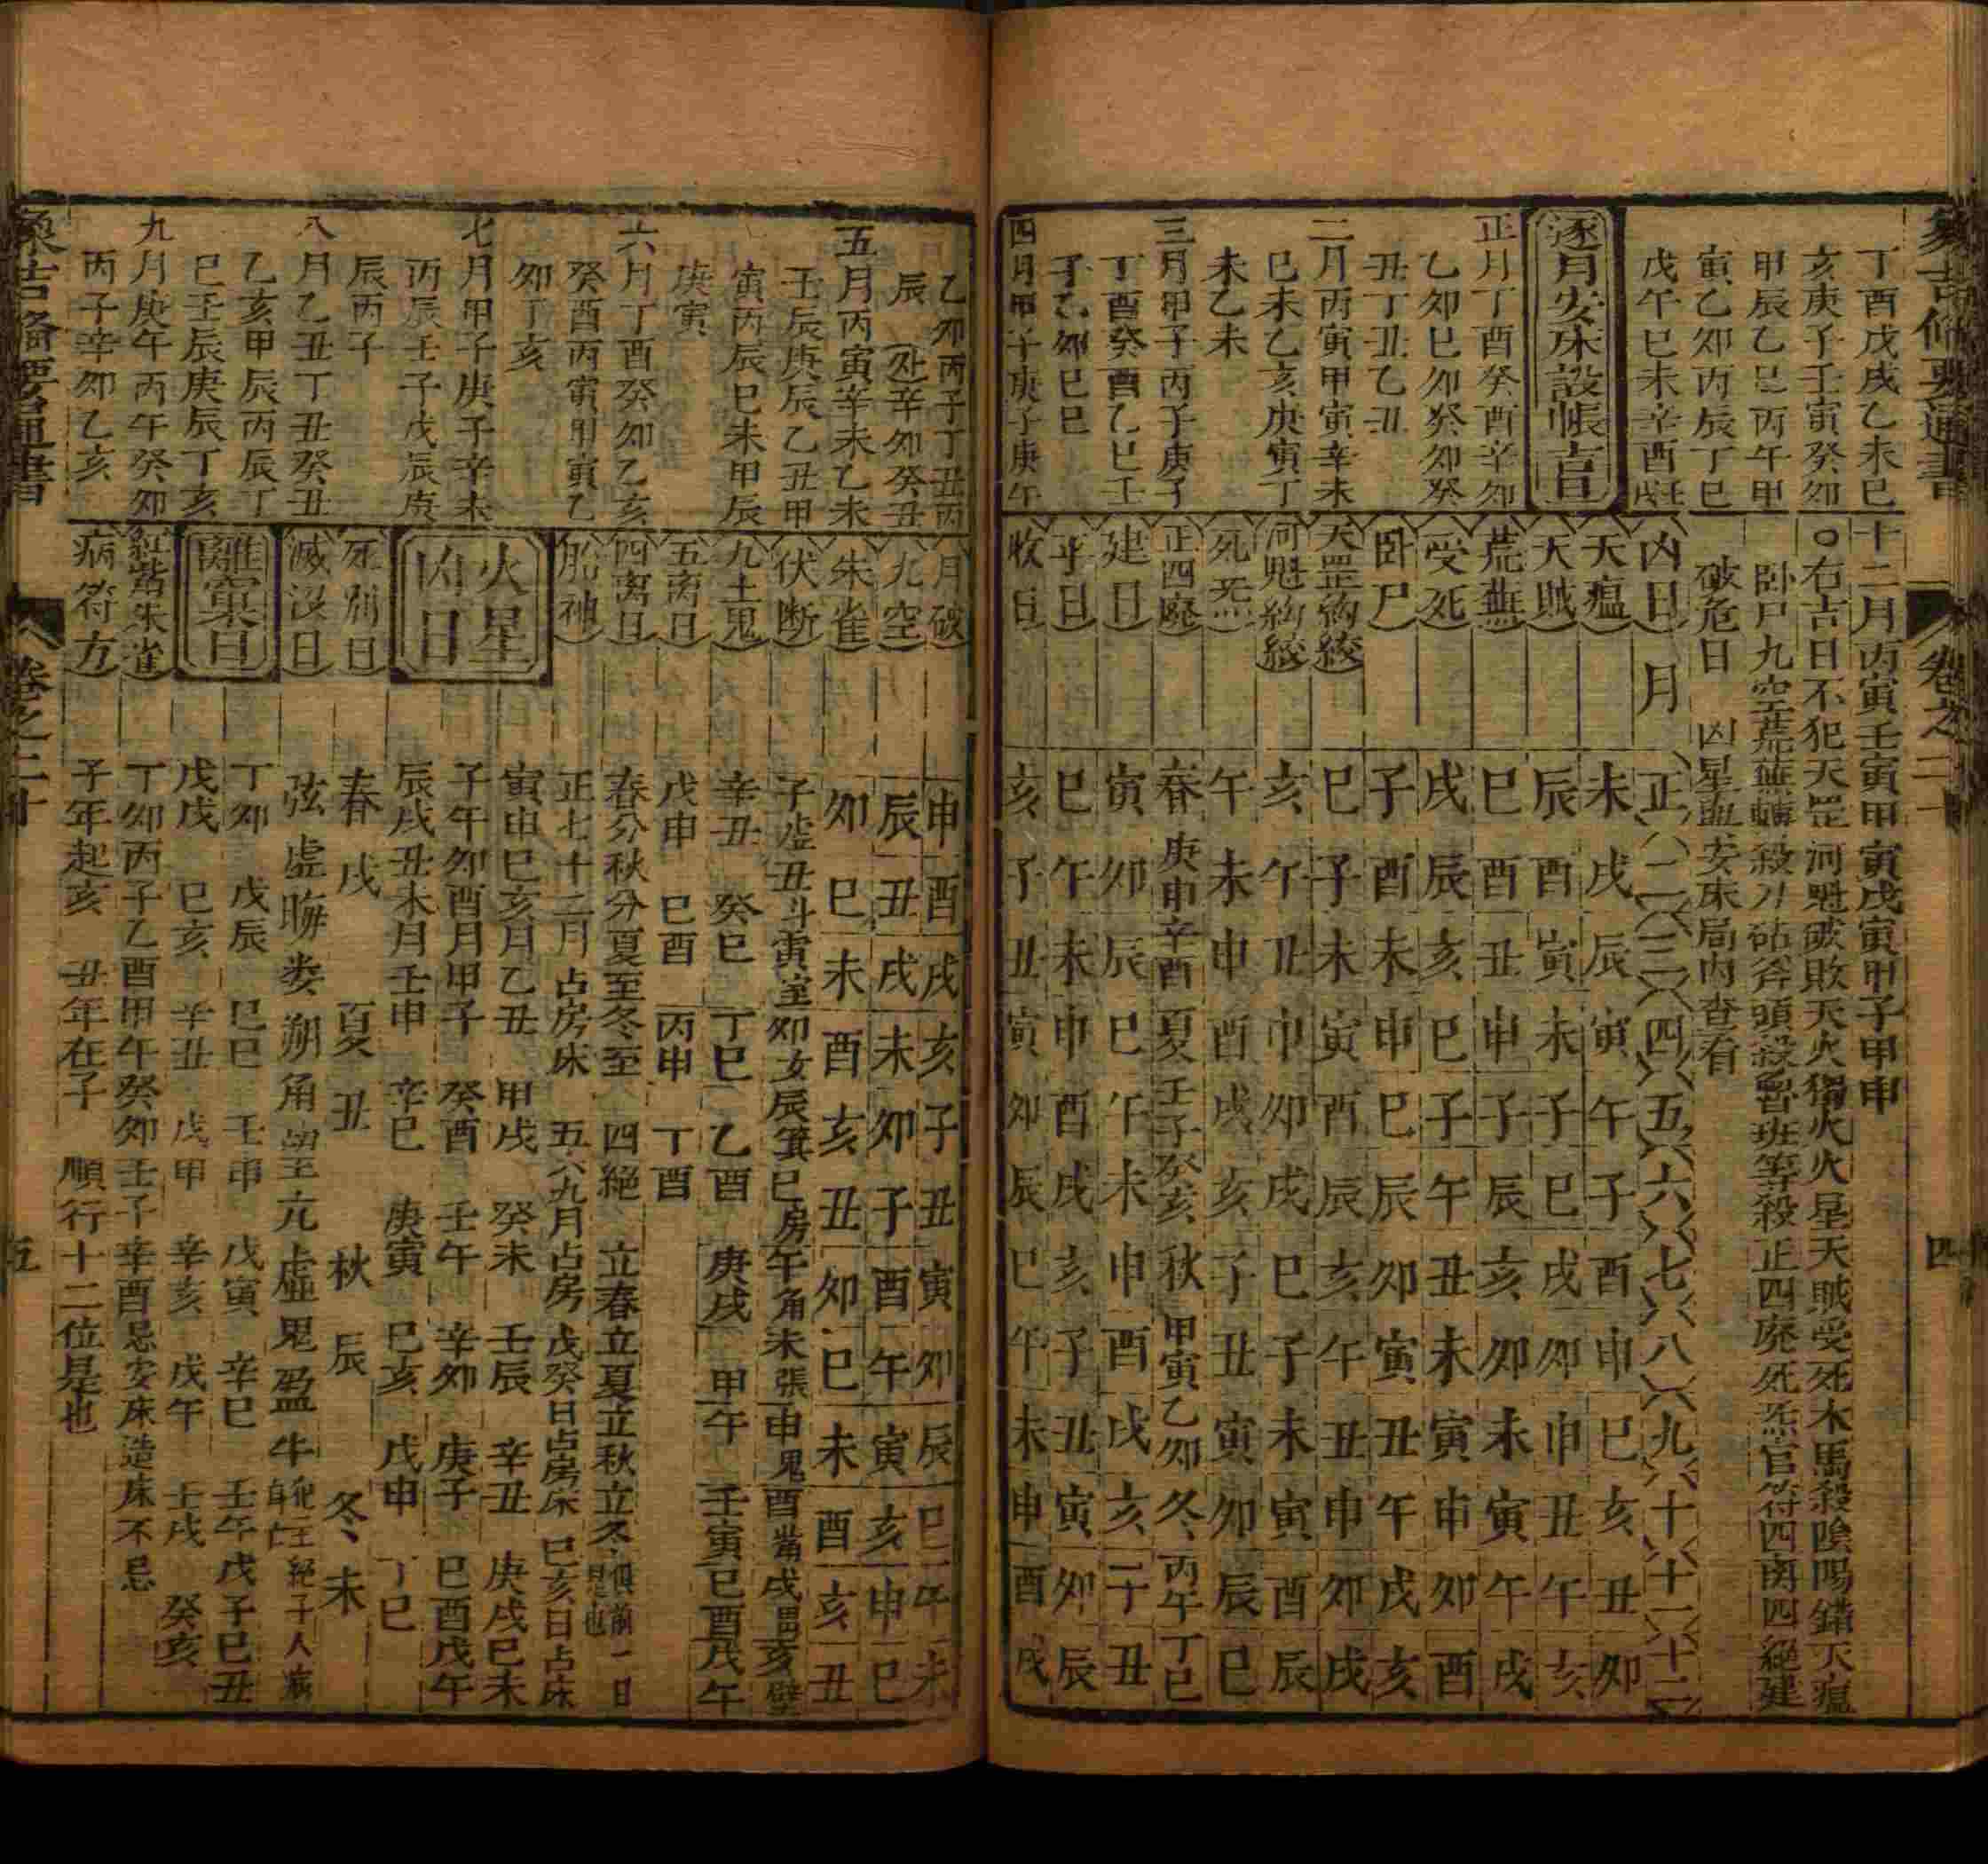 象吉備要通書 卷之二十 四
丁酉戊戌乙未巳
亥庚子壬寅癸卯
甲辰乙巳丙午甲
寅乙卯丙辰丁巳
戊午巳未辛酉
逐月安床設帳吉日
正月丁酉癸酉辛卯
乙卯巳卯癸卯癸
丑丁丑乙丑
二月丙寅甲寅辛未
巳未乙亥庚寅丁
未乙未
三月甲子丙子庚子
丁酉癸酉乙巳壬
子乙卯巳巳
四月甲子庚子庚午
十二月丙寅壬寅甲寅戊寅甲子甲申
○右吉日不犯天罡河魁破敗天火獨火火星天賊受死木馬殺陰陽錯天瘟
卧尸九空荒蕪轉殺刀砧斧頭殺魯班等殺正四廢死炁官符四离四絕建
破危日 凶星並安床局内查看
凶日 月 正 二 三 四 五 六 七 八 九 十 十一 十二
天瘟 未 戌 辰 寅 午 子 酉 申 巳 亥 丑 卯
天賊 辰 酉 寅 未 子 巳 戌 卯 申 丑 午 亥
荒蕪 巳 酉 丑 申 子 辰 亥 卯 未 寅 午 戌
受死 戌 辰 亥 巳 子 午 丑 未 寅 申 卯 酉
卧尸 子 酉 未 申 巳 辰 卯 寅 丑 午 戌 亥
天罡鈎絞 巳 子 未 寅 酉 辰 亥 午 丑 申 卯 戌
河魁鈎絞 亥 午 丑 申 卯 戌 巳 子 未 寅 酉 辰
死炁 午 未 申 酉 戌 亥 子 丑 寅 卯 辰 巳
正四廢 春 庚申辛酉 夏 壬子癸亥 秋 甲寅乙卯 冬 丙午丁巳
建日 寅 卯 辰 巳 午 未 申 酉 戌 亥 子 丑
平日 巳 午 未 申 酉 戌 亥 子 丑 寅 卯 辰
收日 亥 子 丑 寅 卯 辰 巳 午 未 申 酉 戌
乙卯丙子丁丑丙
辰 辛卯癸丑
五月丙寅辛未乙未
壬辰庚辰乙丑甲
寅丙辰巳未甲辰
庚寅
六月丁酉癸卯乙亥
癸酉丙寅甲寅乙
卯丁亥
七月甲子庚子辛未
丙辰壬子戊辰庚
辰丙子
八月乙丑丁丑癸丑
乙亥甲辰丙辰丁
巳壬辰庚辰丁亥
九月庚午丙午癸卯
丙子辛卯乙亥
月破 申 酉 戌 亥 子 丑 寅 卯 辰 巳 午 未
九空 辰 丑 戌 未 卯 子 酉 午 寅 亥 申 巳
朱雀 卯 巳 未 酉 亥 丑 卯 巳 未 酉 亥 丑
伏断 子虛丑斗寅室卯女辰箕巳房午角未張申鬼酉觜戌胃亥壁
九土鬼 辛丑 癸巳 丁巳 乙酉 庚戌 甲午 壬寅 巳酉 戊午
五离日 戊申 巳酉 丙申 丁酉
四离日 春分秋分夏至冬至 四絕 立春立夏立秋立冬 俱前一日是也
胎神 正七十二月占房床 五六九月占房 戊癸日占房床 巳亥日占床
火星凶日 寅申巳亥月乙丑 甲戌 癸未 壬辰 辛丑 庚戌巳未
子午卯酉月甲子 癸酉 壬午 辛卯 庚子 巳酉戊午
辰戌丑未月壬申 辛巳 庚寅 巳亥 戊申 丁巳
死別日 春 戌 夏 丑 秋 辰 冬 未
滅没日 弦虛晦娄朔角望亢虛鬼盈牛 犯主絕子人病
離窠日 丁卯 戊辰 巳巳 壬申 戊寅 辛巳 壬午戊子巳丑
戊戌 巳亥 辛丑 戊申 辛亥 戊午 壬戌 癸亥
紅觜朱雀 丁卯丙子乙酉甲午癸卯壬子辛酉忌安床造床不忌
病符方 子年起亥 丑年在子 順行十二位是也
象吉備要通書 卷之二十 五